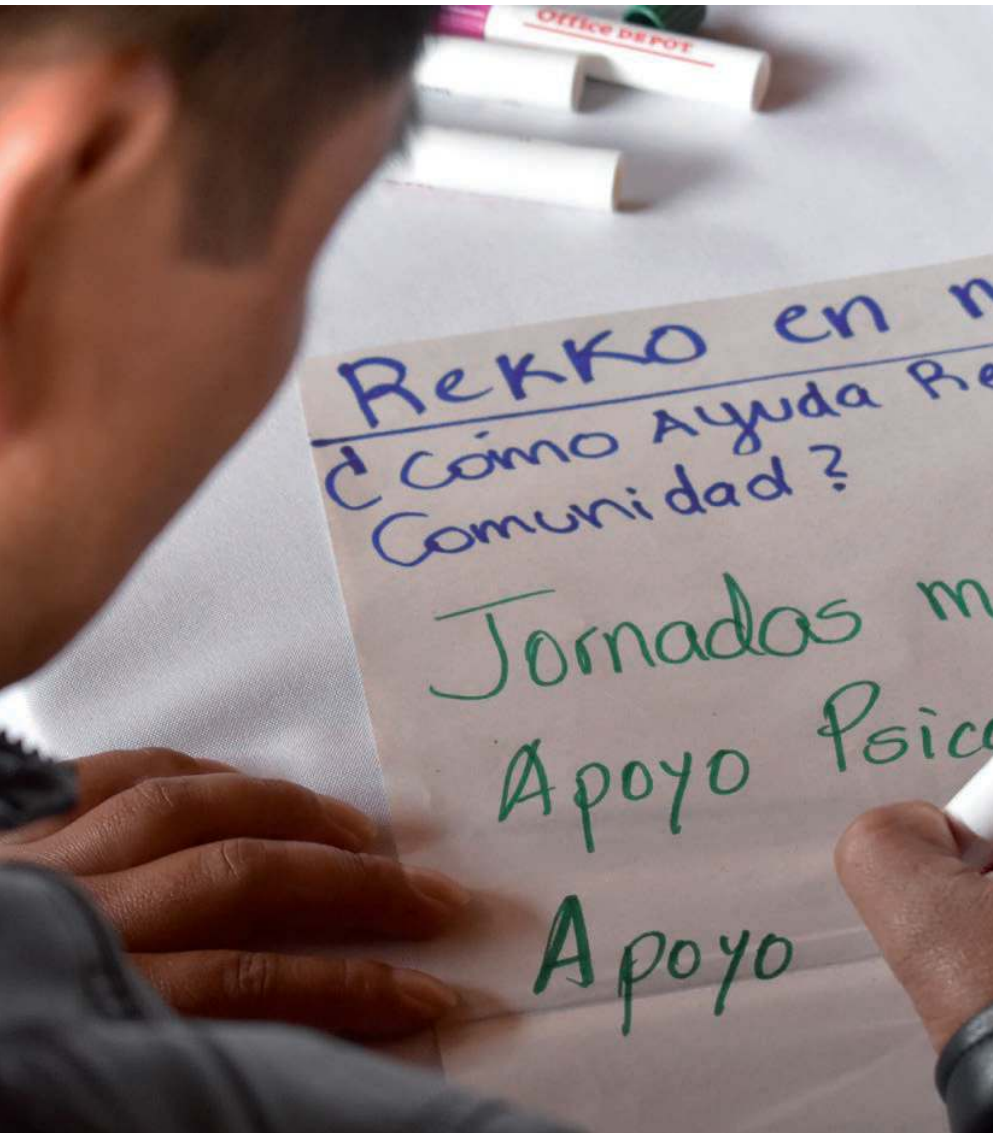 Office DEPOT
Rekko en
¿Cómo Ayuda
Comunidad?
Jornadas
Apoyo
Apoyo